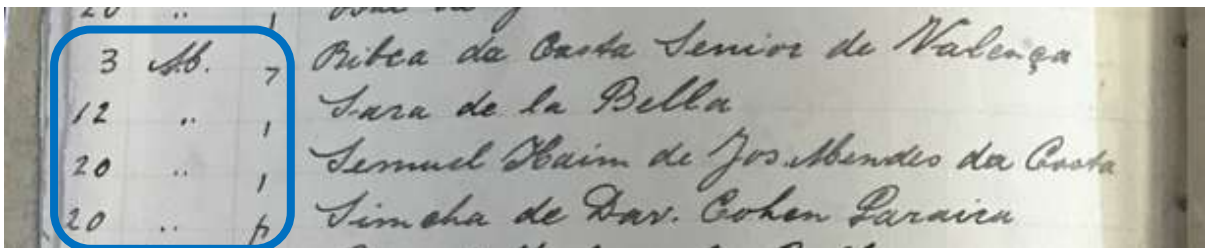 20 .. 1
3 Ab. 7 Ribca da Costa Senior de Valença
12 .. 1 Sara de la Bella
20 .. 1 Semuel Haim de Jos. Mendes da Costa
20 .. p Simcha de Dav. Cohen Paraira